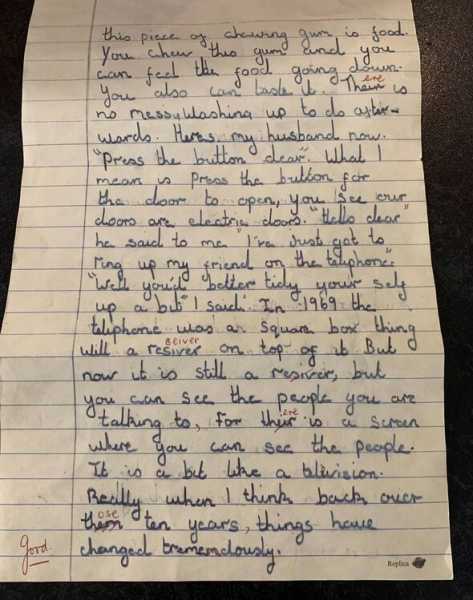 this piece of chewing gum is food.
You chew this gum and you
can feel the food going down.
You also can taste it. Their ere is
no messy washing up to do after-
wards. Heres my husband now.
"Press the button dear". What I
mean is press the button for
the door to open, you see our
doors are electric doors. "Hello dear"
he said to me "I've just got to
ring up my friend on the teliphone."
"Well you'd better tidy your self
up a bit" I said. In 1969 the
teliphone was a square box thing
with a resiver ceiver on top of it But
now it is still a resiver, but
you can see the people you are
talking to, for their ere is a screen
where you can see the people.
It is a bit like a telivision.
Really when I think back over
them ose ten years, things have
changed trememdously.
Good
Replica